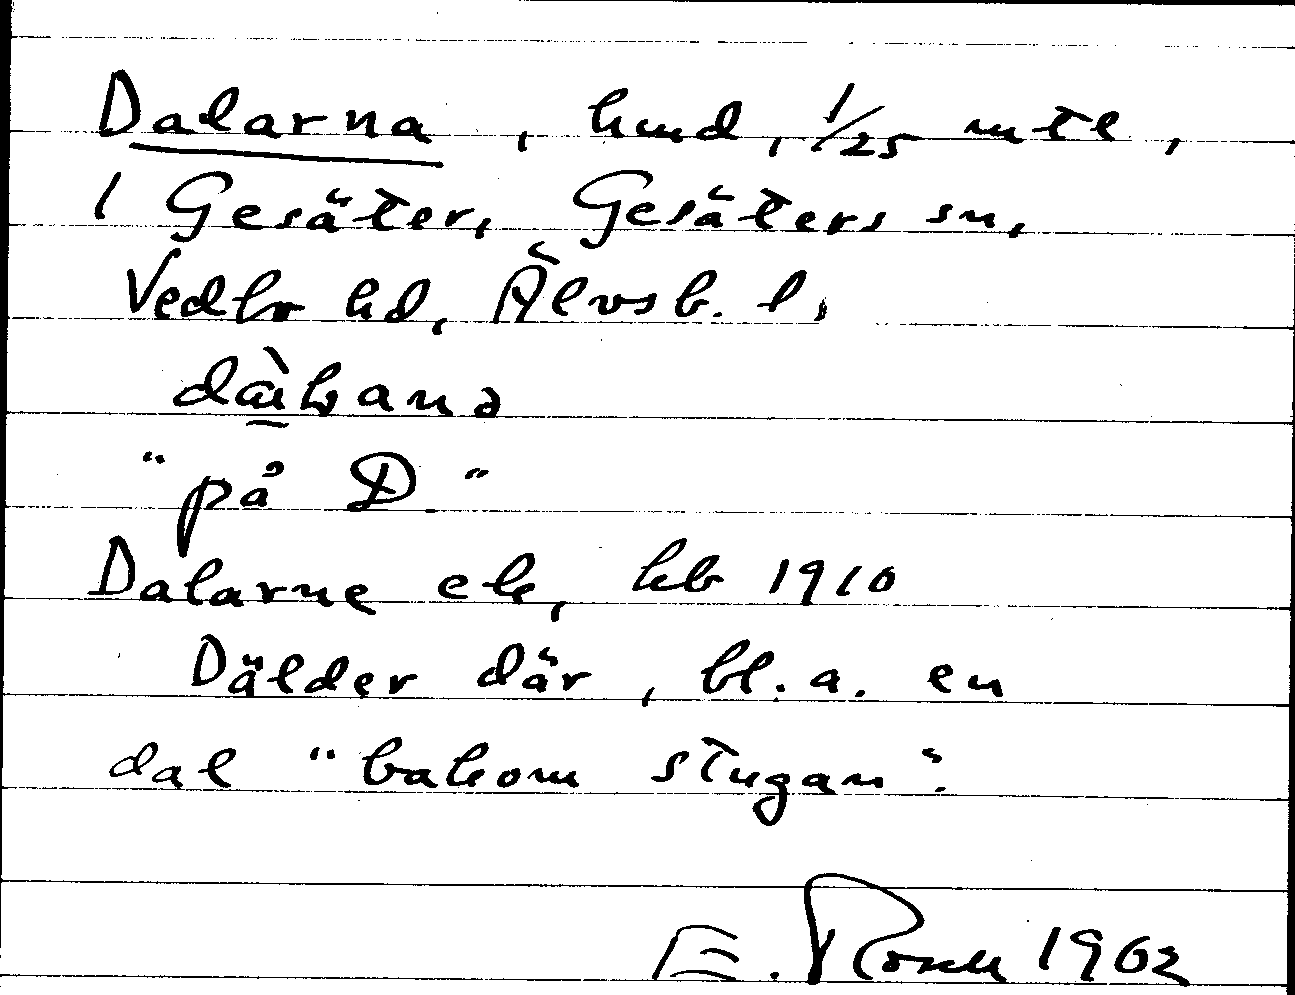 Dalarna, hmd, 1/25 mtl,
1 Gesäter, Gesäters sn,
Vedbo hd, Älvsb. l.
"på D"
Dalarne ek, hb 1910
Dälder där, bl. a. en
dal "bakom stugan".
E. Rosell 1962